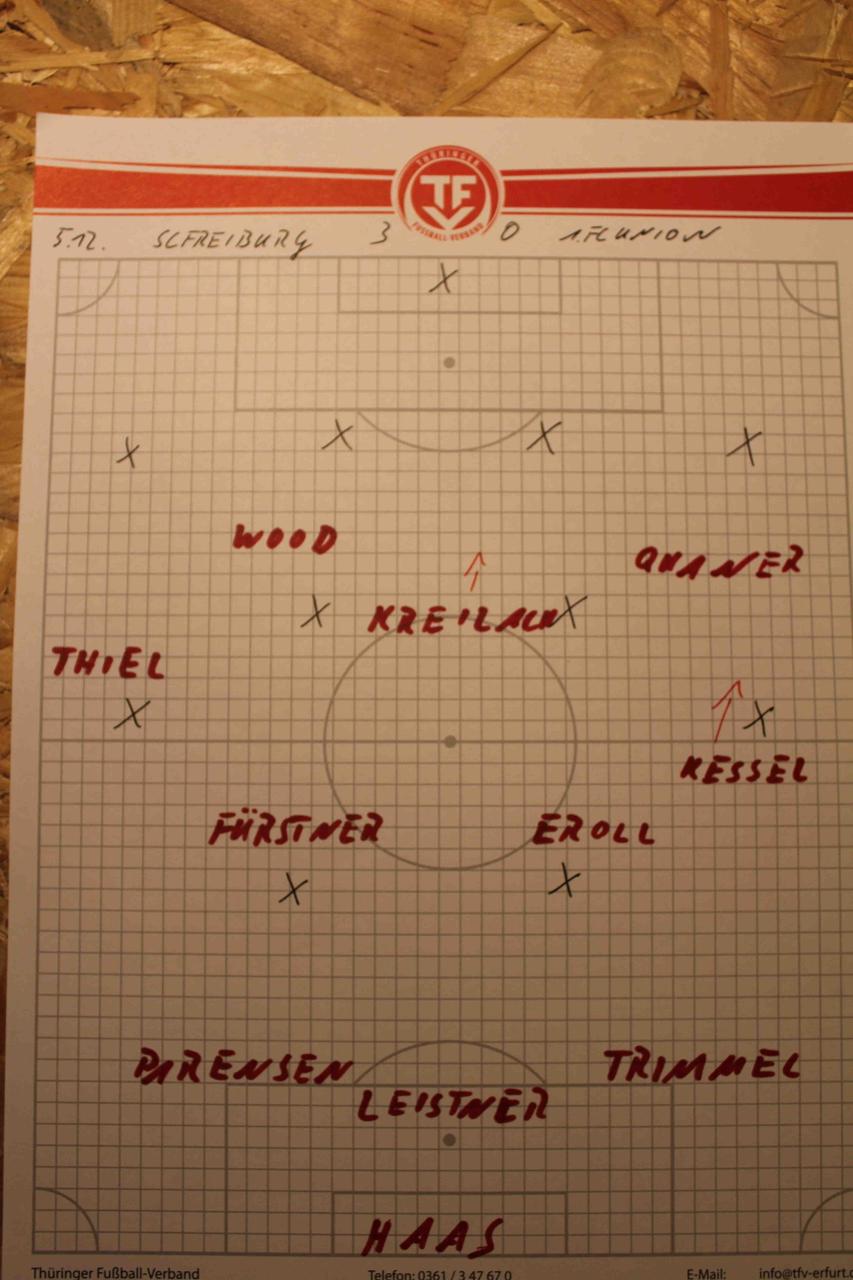 THÜRINGER
TF
FUSSBALL-VERBAND
5.12. SCFREIBURG 3 0 1.FC UNION
X
X X X X
WOOD
QUANER
X KREILACH X
THIEL
X X
KESSEL
FÜRSTNER EROLL
X X
PARENSEN TRIMMEL
LEISTNER
HAAS
Thüringer Fußball-Verband Telefon: 0361 / 3 47 67 0 E-Mail: info@tfv-erfurt.d